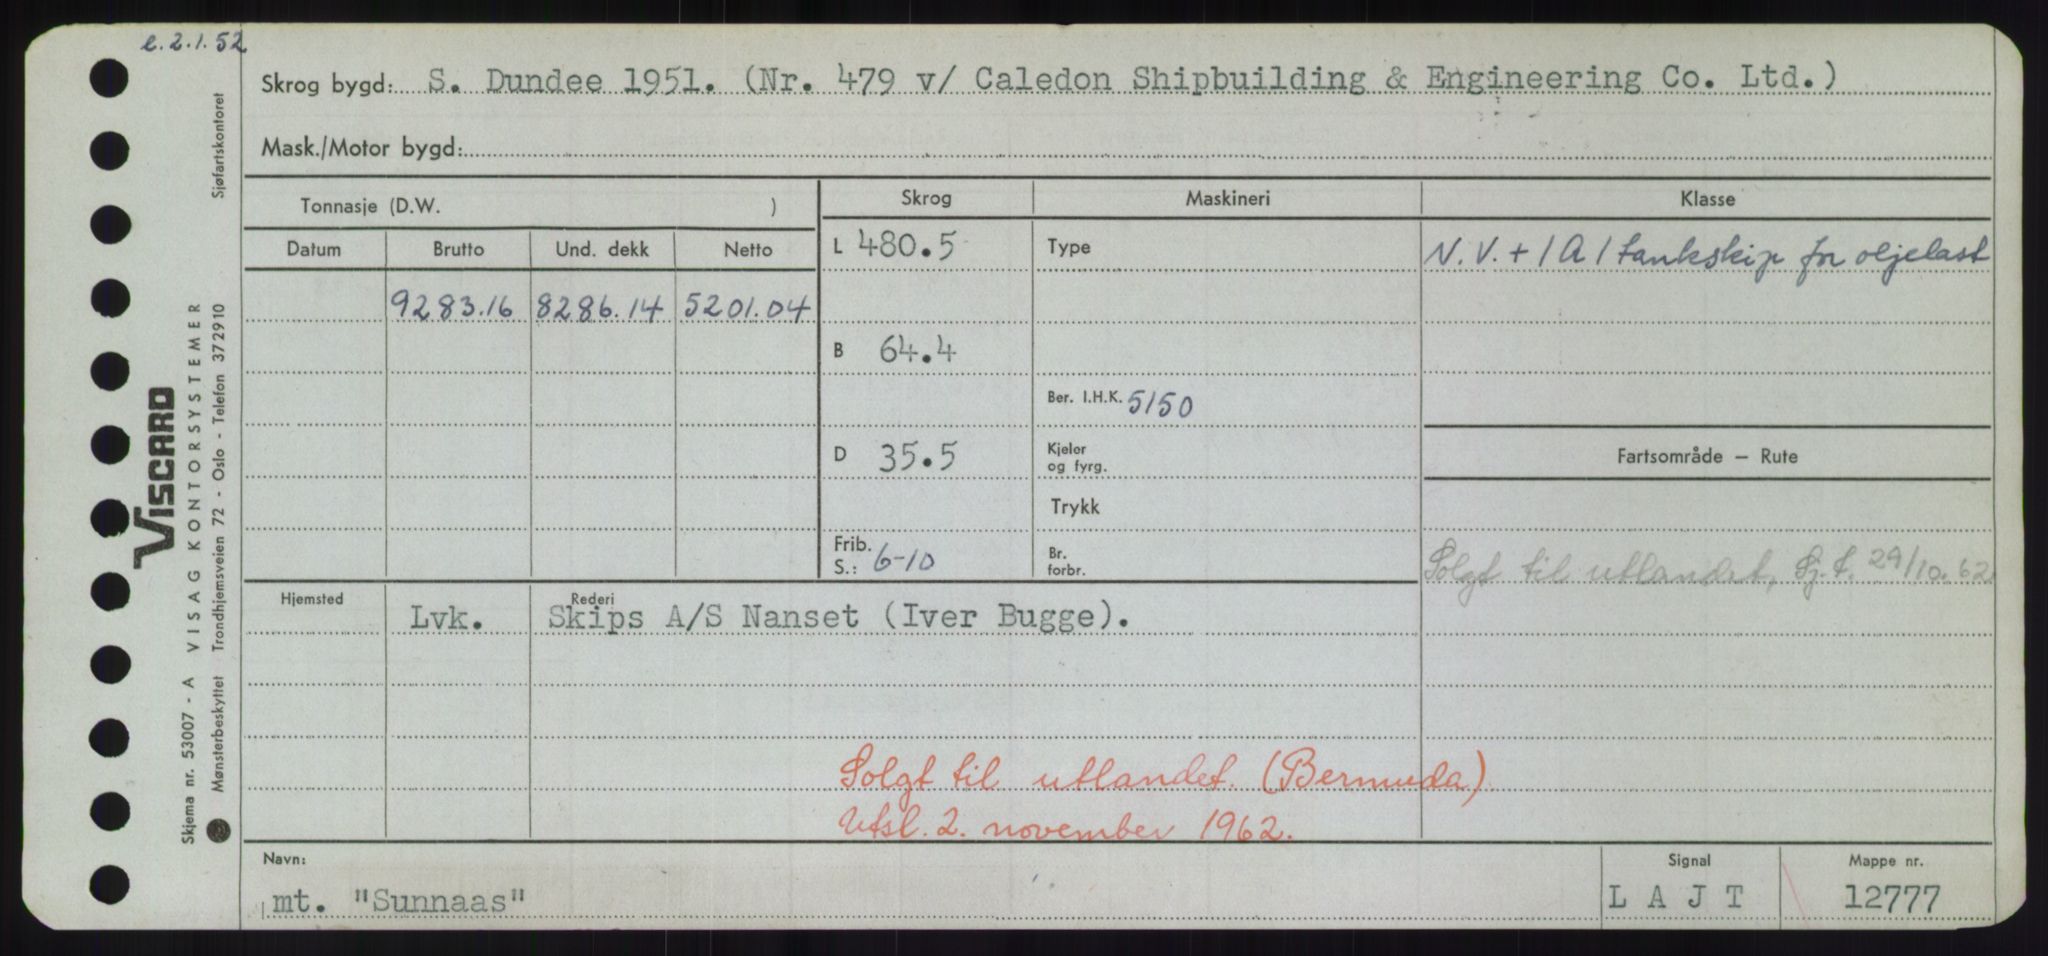 e.2.1.52
Skrog bygd: S. Dundee 1951. (Nr. 479 v/ Caledon Shipbuilding & Engineering Co. Ltd.)
Mask./Motor bygd:
Tonnasje (D.W. )
Skrog Maskineri Klasse
Datum Brutto Und. dekk Netto
L 480.5 Type N.V. + 1 A 1 tankskip for oljelast
9283.16 8286.14 5201.04
B 64.4
Ber. I.H.K. 5150
D 35.5 Kjeler og fyrg.
Fartsområde – Rute
Trykk
Frib. S.: 6-10 Br. forbr.
Solgt til utlandet, Sj.f. 29/10.62.
Hjemsted Rederi
Lvk. Skips A/S Nanset (Iver Bugge).
Solgt til utlandet. (Bermuda).
Utsl. 2. november 1962.
Navn: Signal Mappe nr.
mt. "Sunnaas" L A J T 12777
VISCARD
Skjema nr. 53007 - A VISAG KONTORSYSTEMER
Mønsterbeskyttet Trondhjemsveien 72 - Oslo - Telefon 372910 Sjøfartskontoret